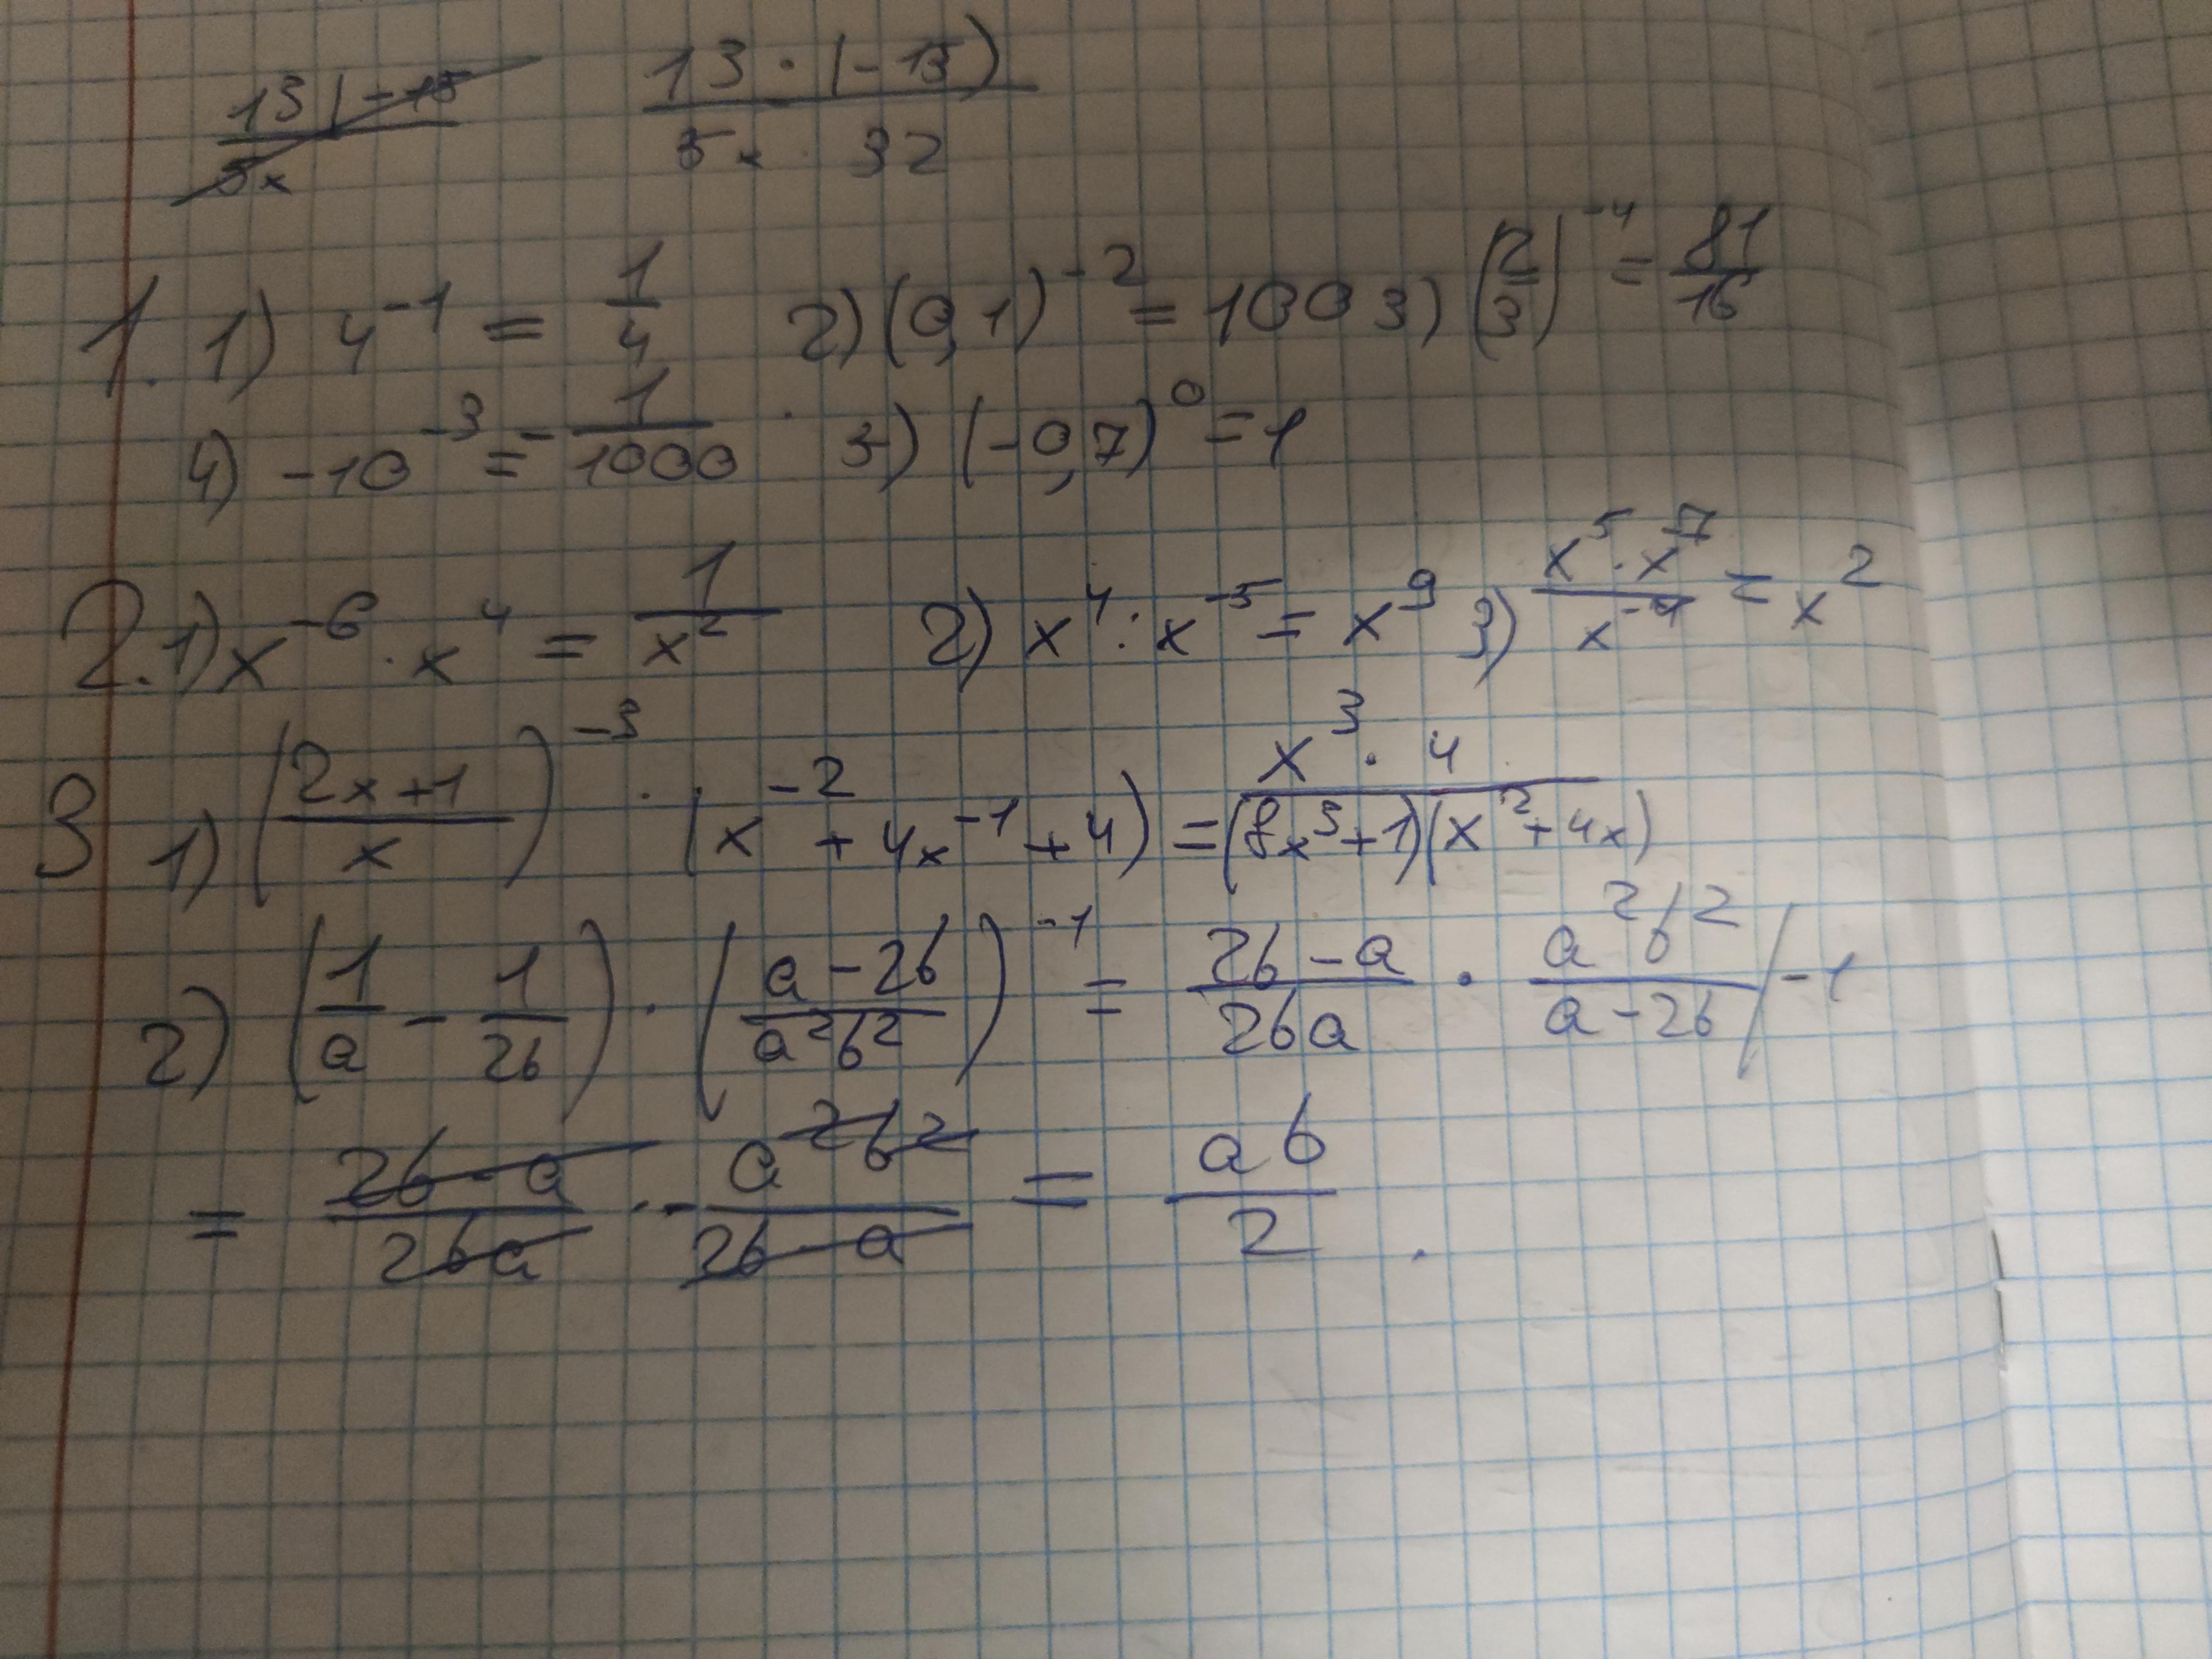 13(-15 / 5x
13 · (-15) / 5x · 32
1. 1) 4⁻¹ = 1/4 2) (0,1)⁻² = 100 3) (2/3)⁻⁴ = 81/16
4) -10⁻³ = -1/1000 · 5) (-0,7)⁰ = 1
2. 1) x⁻⁶ · x⁴ = 1/x² 2) x⁴ : x⁻⁵ = x⁹ 3) x⁵ · x⁻⁷ / x⁻⁴ = x²
3 1) (2x+1 / x)⁻³ · (x⁻² + 4x⁻¹ + 4) = x³ · 4 / (8x³+1)(x²+4x)
2) (1/a - 1/2b) · (a-2b / a²b²)⁻¹ = 2b-a / 2ba · a²b² / a-2b /-1
= 2b-a / 2ba · - a²b² / 2b-a = ab / 2 .